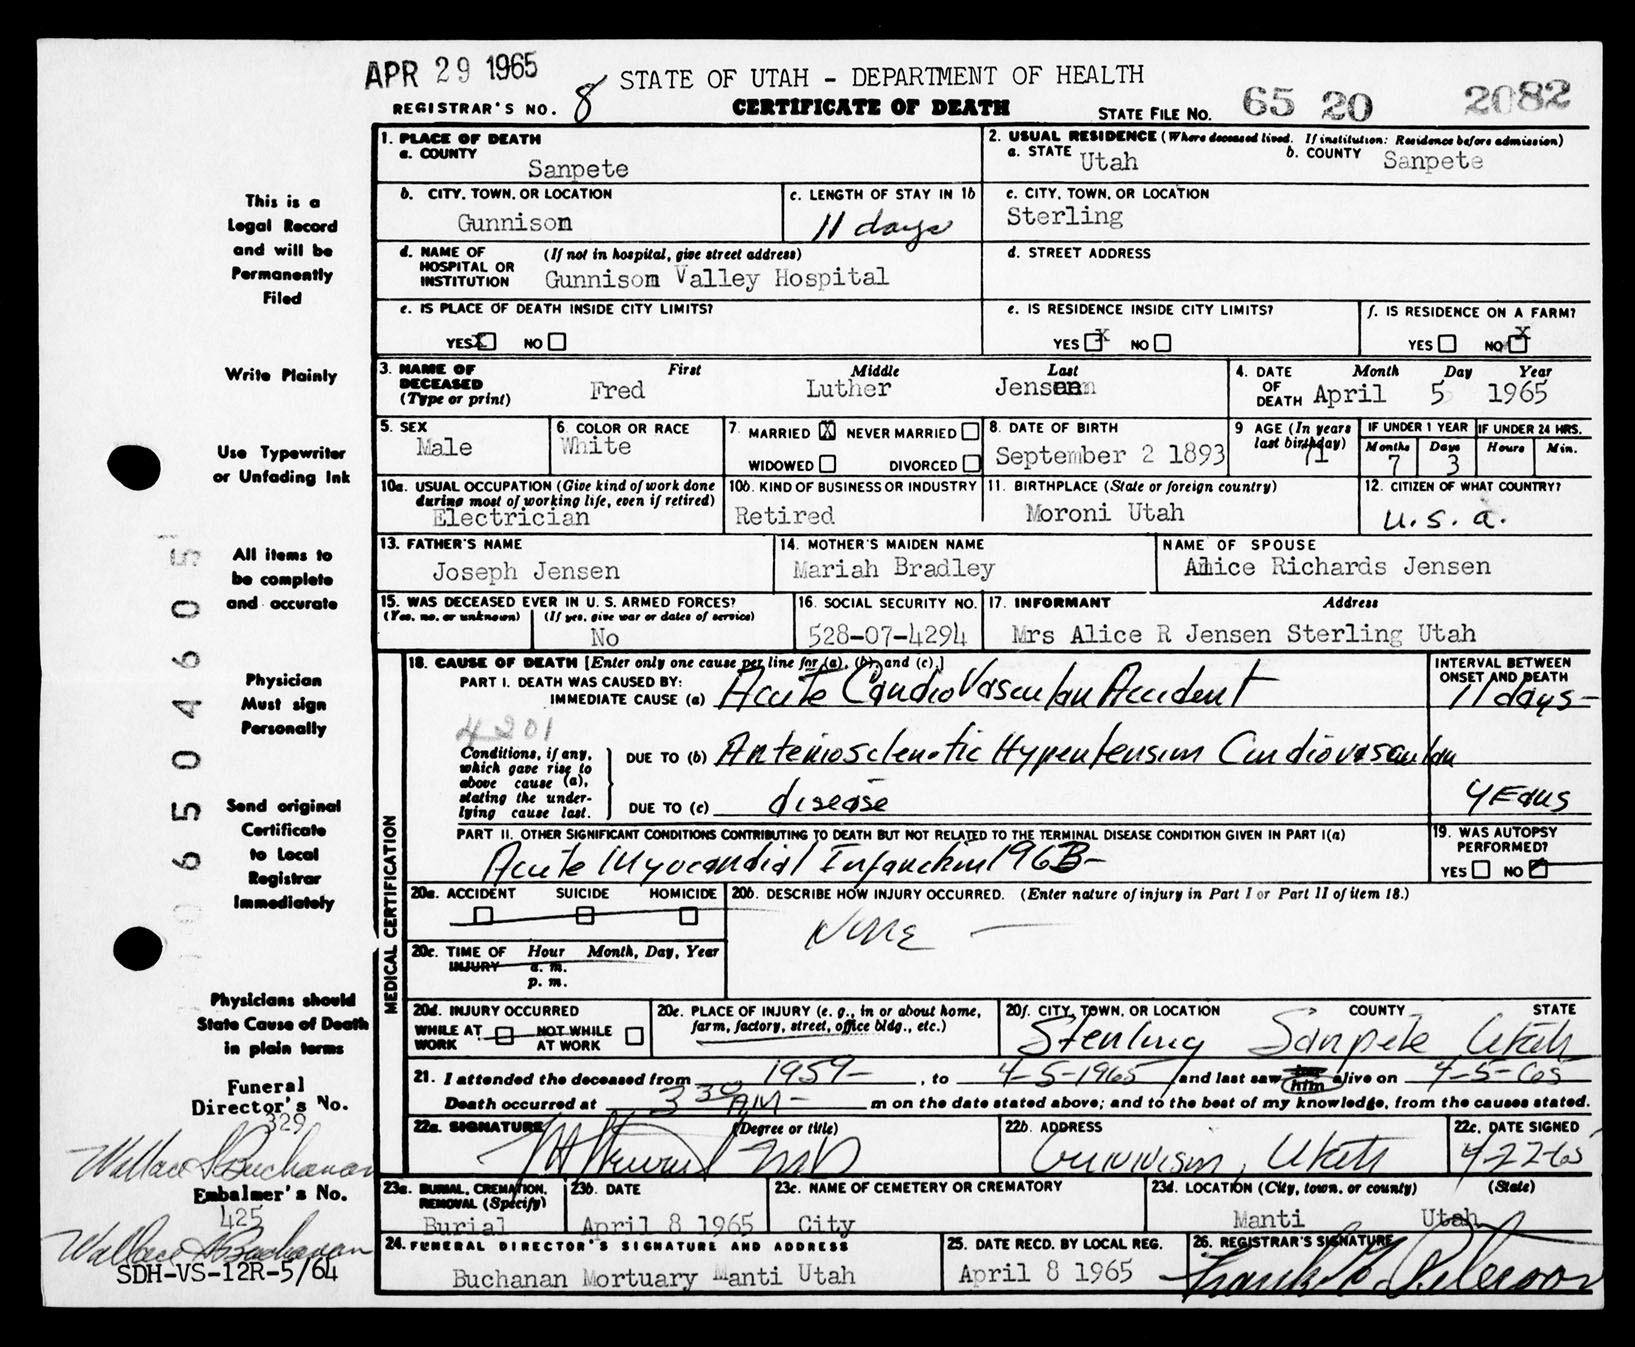 APR 29 1965
STATE OF UTAH - DEPARTMENT OF HEALTH
REGISTRAR'S NO. 8
CERTIFICATE OF DEATH
STATE FILE NO. 65 20 2082
This is a
Legal Record
and will be
Permanently
Filed
Write Plainly
Use Typewriter
or Unfading Ink
All items to
be complete
and accurate
Physician
Must sign
Personally
Send original
Certificate
to Local
Registrar
Immediately
Physicians should
State Cause of Death
in plain terms
Funeral
Director's No.
329
Wallace S Buchanan
Embalmer's No.
425
Wallace S Buchanan
SDH-VS-12R-5/64
1. PLACE OF DEATH
a. COUNTY
Sanpete
2. USUAL RESIDENCE (Where deceased lived. If institution: Residence before admission)
a. STATE Utah b. COUNTY Sanpete
b. CITY, TOWN, OR LOCATION
Gunnison
c. LENGTH OF STAY IN 1b
11 days
c. CITY, TOWN, OR LOCATION
Sterling
d. NAME OF HOSPITAL OR INSTITUTION (If not in hospital, give street address)
Gunnison Valley Hospital
d. STREET ADDRESS
e. IS PLACE OF DEATH INSIDE CITY LIMITS?
YES X NO
e. IS RESIDENCE INSIDE CITY LIMITS?
YES X NO
f. IS RESIDENCE ON A FARM?
YES NO X
3. NAME OF DECEASED (Type or print)
First Middle Last
Fred Luther Jensen
4. DATE OF DEATH
Month Day Year
April 5 1965
5. SEX
Male
6. COLOR OR RACE
White
7. MARRIED X NEVER MARRIED
WIDOWED DIVORCED
8. DATE OF BIRTH
September 2 1893
9 AGE (In years last birthday)
71
IF UNDER 1 YEAR
Months Days
7 3
IF UNDER 24 HRS.
Hours Min.
10a. USUAL OCCUPATION (Give kind of work done during most of working life, even if retired)
Electrician
10b. KIND OF BUSINESS OR INDUSTRY
Retired
11. BIRTHPLACE (State or foreign country)
Moroni Utah
12. CITIZEN OF WHAT COUNTRY?
U.S.A.
13. FATHER'S NAME
Joseph Jensen
14. MOTHER'S MAIDEN NAME
Mariah Bradley
NAME OF SPOUSE
Alice Richards Jensen
15. WAS DECEASED EVER IN U. S. ARMED FORCES?
(Yes, no, or unknown) (If yes, give war or dates of service)
No
16. SOCIAL SECURITY NO.
528-07-4294
17. INFORMANT Address
Mrs Alice R Jensen Sterling Utah
MEDICAL CERTIFICATION
18. CAUSE OF DEATH [Enter only one cause per line for (a), (b), and (c).]
PART I. DEATH WAS CAUSED BY:
IMMEDIATE CAUSE (a) Acute CardioVascular Accident
INTERVAL BETWEEN ONSET AND DEATH
11 days-
4201
Conditions, if any, which gave rise to above cause (a), stating the underlying cause last.
DUE TO (b) Arteriosclerotic Hypertension Cardiovascular
DUE TO (c) disease
YEars
PART II. OTHER SIGNIFICANT CONDITIONS CONTRIBUTING TO DEATH BUT NOT RELATED TO THE TERMINAL DISEASE CONDITION GIVEN IN PART I(a)
Acute Myocardial Infarction 1963-
19. WAS AUTOPSY PERFORMED?
YES NO
20a. ACCIDENT SUICIDE HOMICIDE
20b. DESCRIBE HOW INJURY OCCURRED. (Enter nature of injury in Part I or Part II of item 18.)
None -
20c. TIME OF INJURY Hour Month, Day, Year
a. m.
p. m.
20d. INJURY OCCURRED
WHILE AT WORK NOT WHILE AT WORK
20e. PLACE OF INJURY (e. g., in or about home, farm, factory, street, office bldg., etc.)
20f. CITY, TOWN, OR LOCATION COUNTY STATE
Sterling Sanpete Utah
21. I attended the deceased from 1959-, to 4-5-1965 and last saw him alive on 4-5-65
Death occurred at 3 30 AM- m on the date stated above; and to the best of my knowledge, from the causes stated.
22a. SIGNATURE (Degree or title)
22b. ADDRESS
Gunnison, Utah
22c. DATE SIGNED
4-22-65
23a. BURIAL, CREMATION, REMOVAL (Specify)
Burial
23b. DATE
April 8 1965
23c. NAME OF CEMETERY OR CREMATORY
City
23d. LOCATION (City, town, or county) (State)
Manti Utah
24. FUNERAL DIRECTOR'S SIGNATURE AND ADDRESS
Buchanan Mortuary Manti Utah
25. DATE RECD. BY LOCAL REG.
April 8 1965
26. REGISTRAR'S SIGNATURE